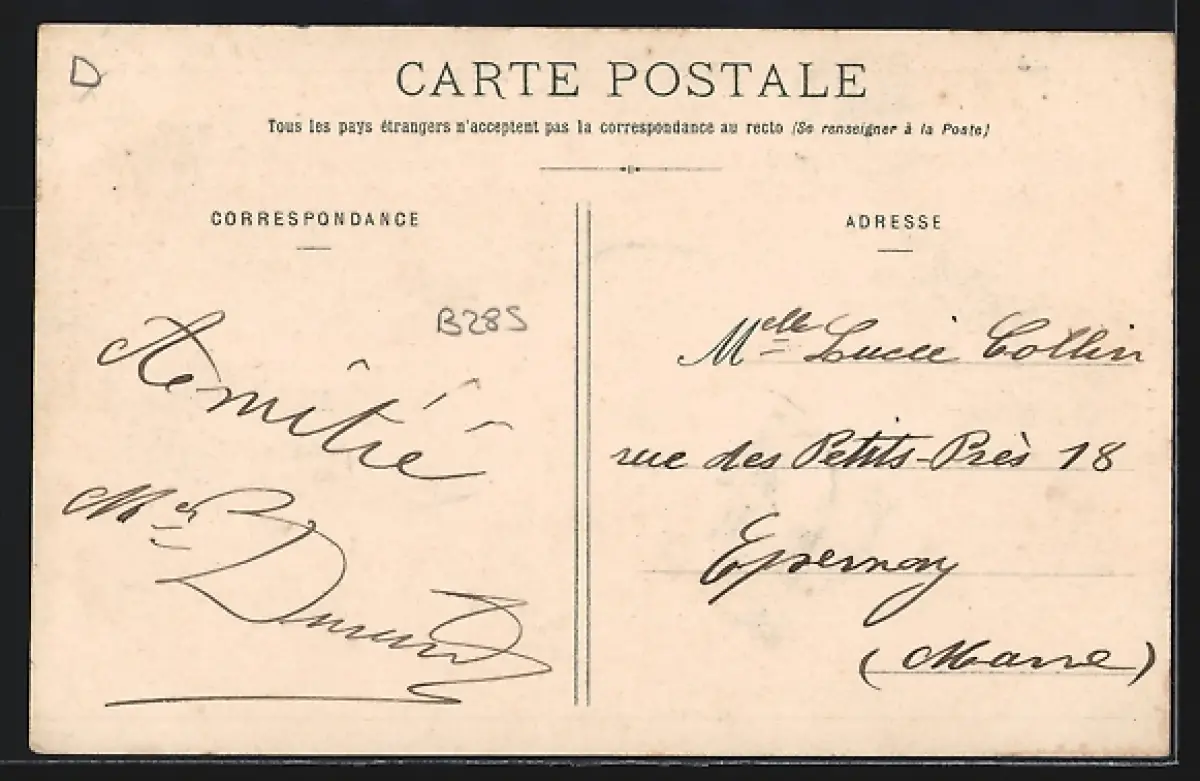 D
CARTE POSTALE
Tous les pays étrangers n'acceptent pas la correspondance au recto (Se renseigner à la Poste)
CORRESPONDANCE
B285
Amitié
Durand
ADRESSE
Melle Lucie Collin
rue des Petits-Près 18
Epernay
(Marne)